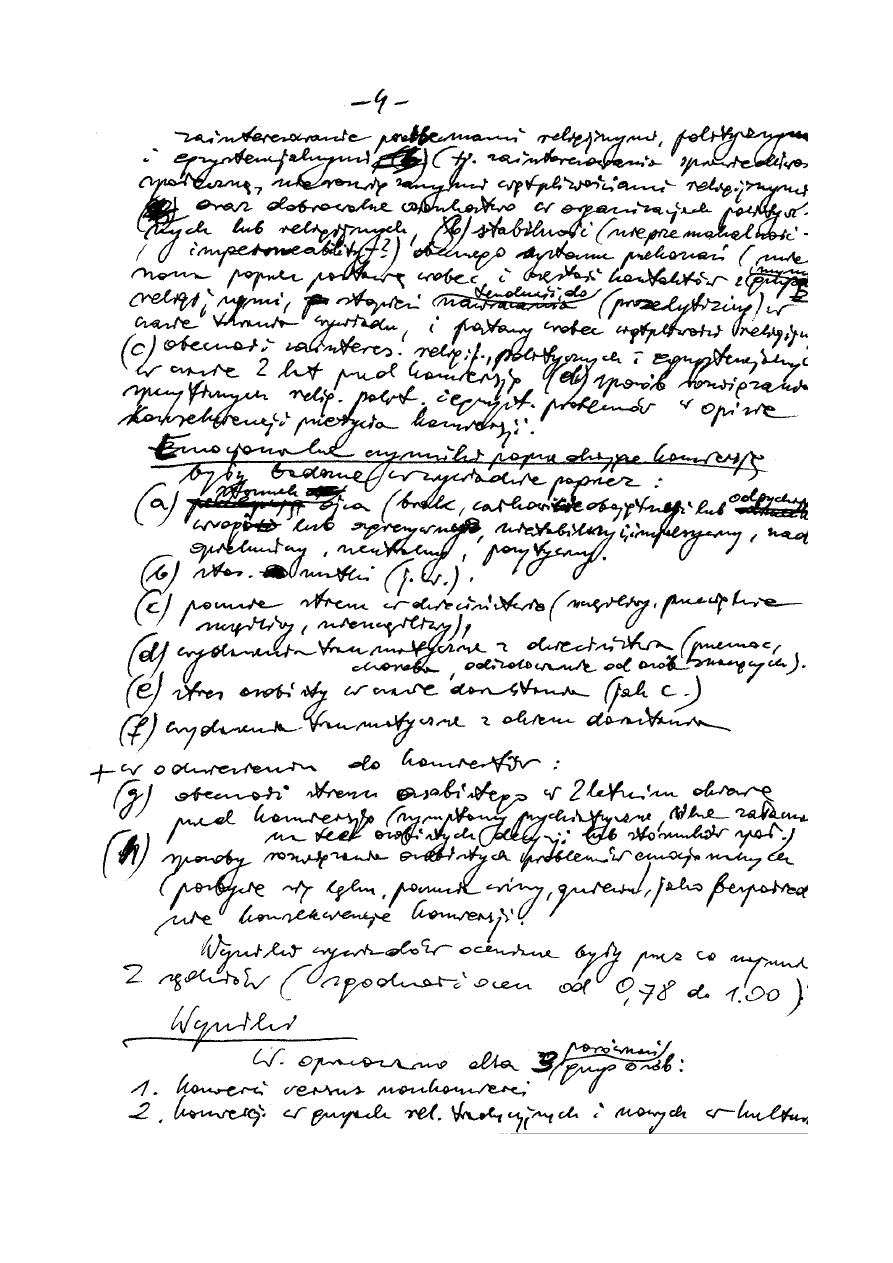 -4-
zainteresowanie problemami religijnymi, politycznymi
i egzystencjalnymi (tj. zainteresowania sprawiedliwoś
społeczną, nierozwiązanymi wątpliwościami religijnymi
oraz dobrowolne członkostwo w organizacjach politycz-
nych lub religijnych, (b) stabilność (nieprzemakalność -
/ impermeability-?) obecnego systemu przekonań (mie
rzona poprzez postawę wobec i częstość kontaktów z innymi grup
religijnymi, stopień tendencji do (prozelityzmu) w
czasie trwania wywiadu, i postawy wobec wątpliwości religijn
(c) obecność zainteres. religij., politycznych i egzystencjalnyc
w czasie 2 lat przed konwersją (d) sposób rozwiązania
specyficznych relig. polit. i egzyst. problemów w opisie
konsekwencji przeżycia konwersji.
Emocjonalne czynniki poprzedzające konwersję
były badane w wywiadzie poprzez:
(a) stosunek ojca (brak, obojętność lub odpychając
wrogość lub agresywność, niestabilny i impulsywny, nad
opiekuńczy, neutralny, pozytywny.
(b) stos. matki (j.w.).
(c) poziom stresu w dzieciństwie (wątpliwy, przeciętnie
wątpliwy, niewątpliwy),
(d) wydarzenia traumatyczne z dzieciństwa (przemoc,
choroba, odizolowanie od osób znaczących).
(e) stres osobisty w czasie dorastania (jak c.)
(f) wydarzenia traumatyczne z okresu dorastania
+ w odniesieniu do konwertów:
(g) obecność stresu osobistego w 2 letnim okresie
przed konwersją (symptomy psychiatryczne, silne załama
na tle osobistych decyzji lub stosunków społ.)
(h) sposoby rozwiązania osobistych problemów emocjonalnych
(pozbycie się lęku, poczucia winy, gniewu, jako bezpośred
nie konsekwencje konwersji.
Wyniki wywiadów oceniane były przez co najmni
2 sędziów (zgodność ocen od 0,78 do 1.00)
Wyniki
W. opracowano dla 3 porównań grup osób:
1. konwerci versus nonkonwerci
2. konwersji w grupach rel. tradycyjnych i nowych w kultur